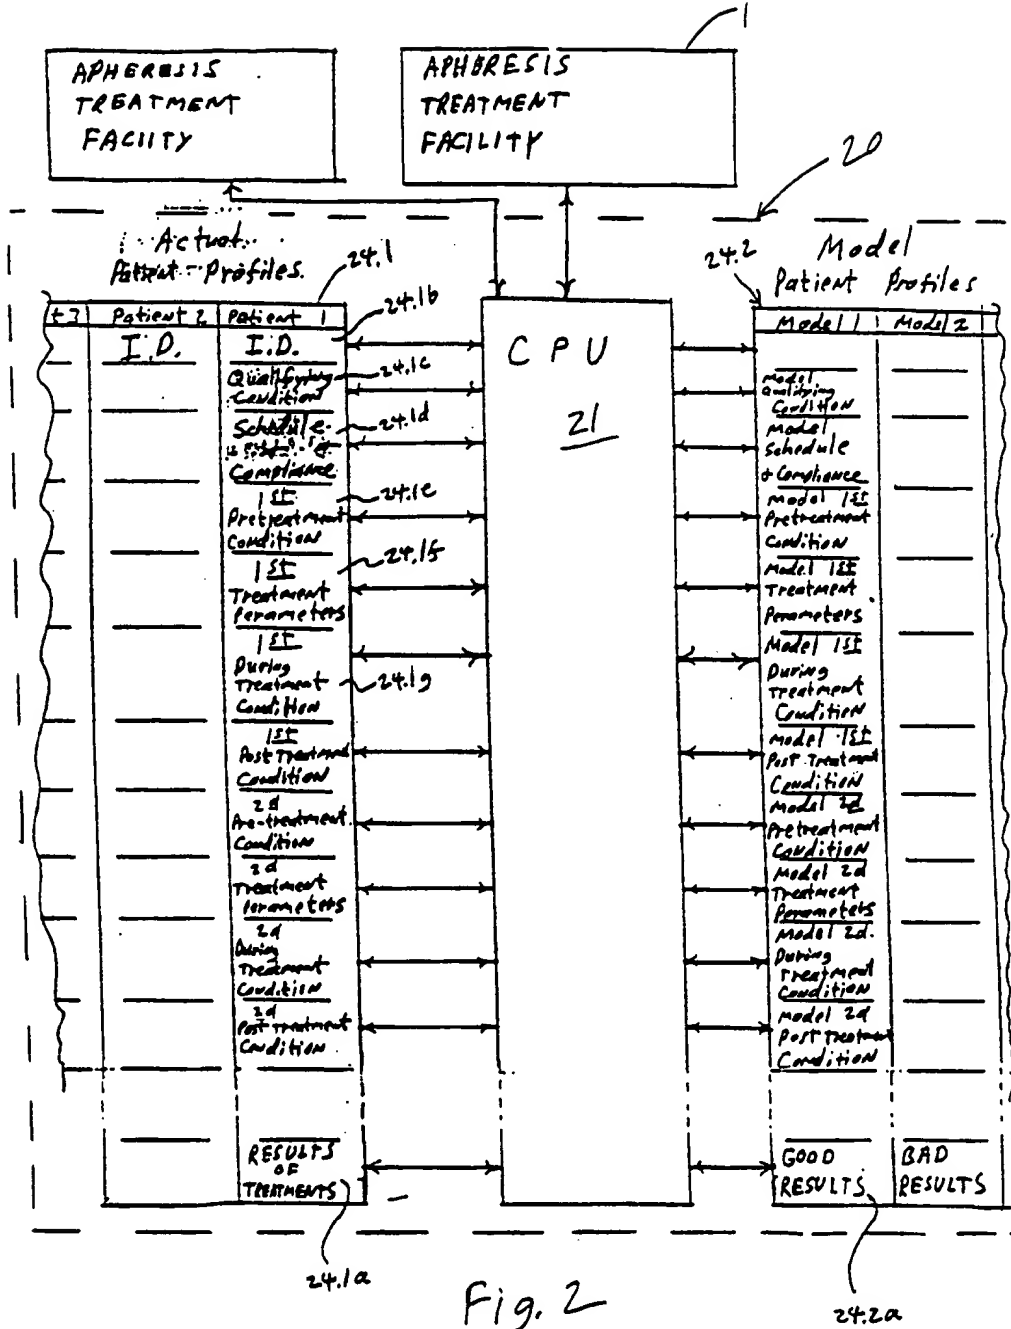 1
APHERESIS
TREATMENT
FACIITY
APHERESIS
TREATMENT
FACILITY
20
Actual
Patient Profiles.
24.1
24.2
Model
Patient Profiles
t 3
Patient 2
Patient 1
24.1b
Model 1
Model 2
I.D.
I.D.
CPU
21
Qualifying
Condition
24.1c
Schedule
24.1d
Compliance
1st
24.1e
Pretreatment
Condition
1st
24.1f
Treatment
Perameters
1st
During
Treatment
24.1g
Condition
1st
Post Treatment
Condition
2d
Pre-treatment
Condition
2d
Treatment
Perameters
2d
During
Treatment
Condition
2d
Post Treatment
Condition
RESULTS
OF
TREATMENTS
24.1a
Model
Qualifying
Condition
Model
Schedule
+ Compliance
Model 1st
Pretreatment
Condition
Model 1st
Treatment
Perameters
Model 1st
During
Treatment
Condition
Model 1st
Post Treatment
Condition
Model 2d
Pretreatment
Condition
Model 2d
Treatment
Perameters
Model 2d.
During
Treatment
Condition
Model 2d
Post Treatment
Condition
GOOD
RESULTS
BAD
RESULTS
24.2a
Fig. 2